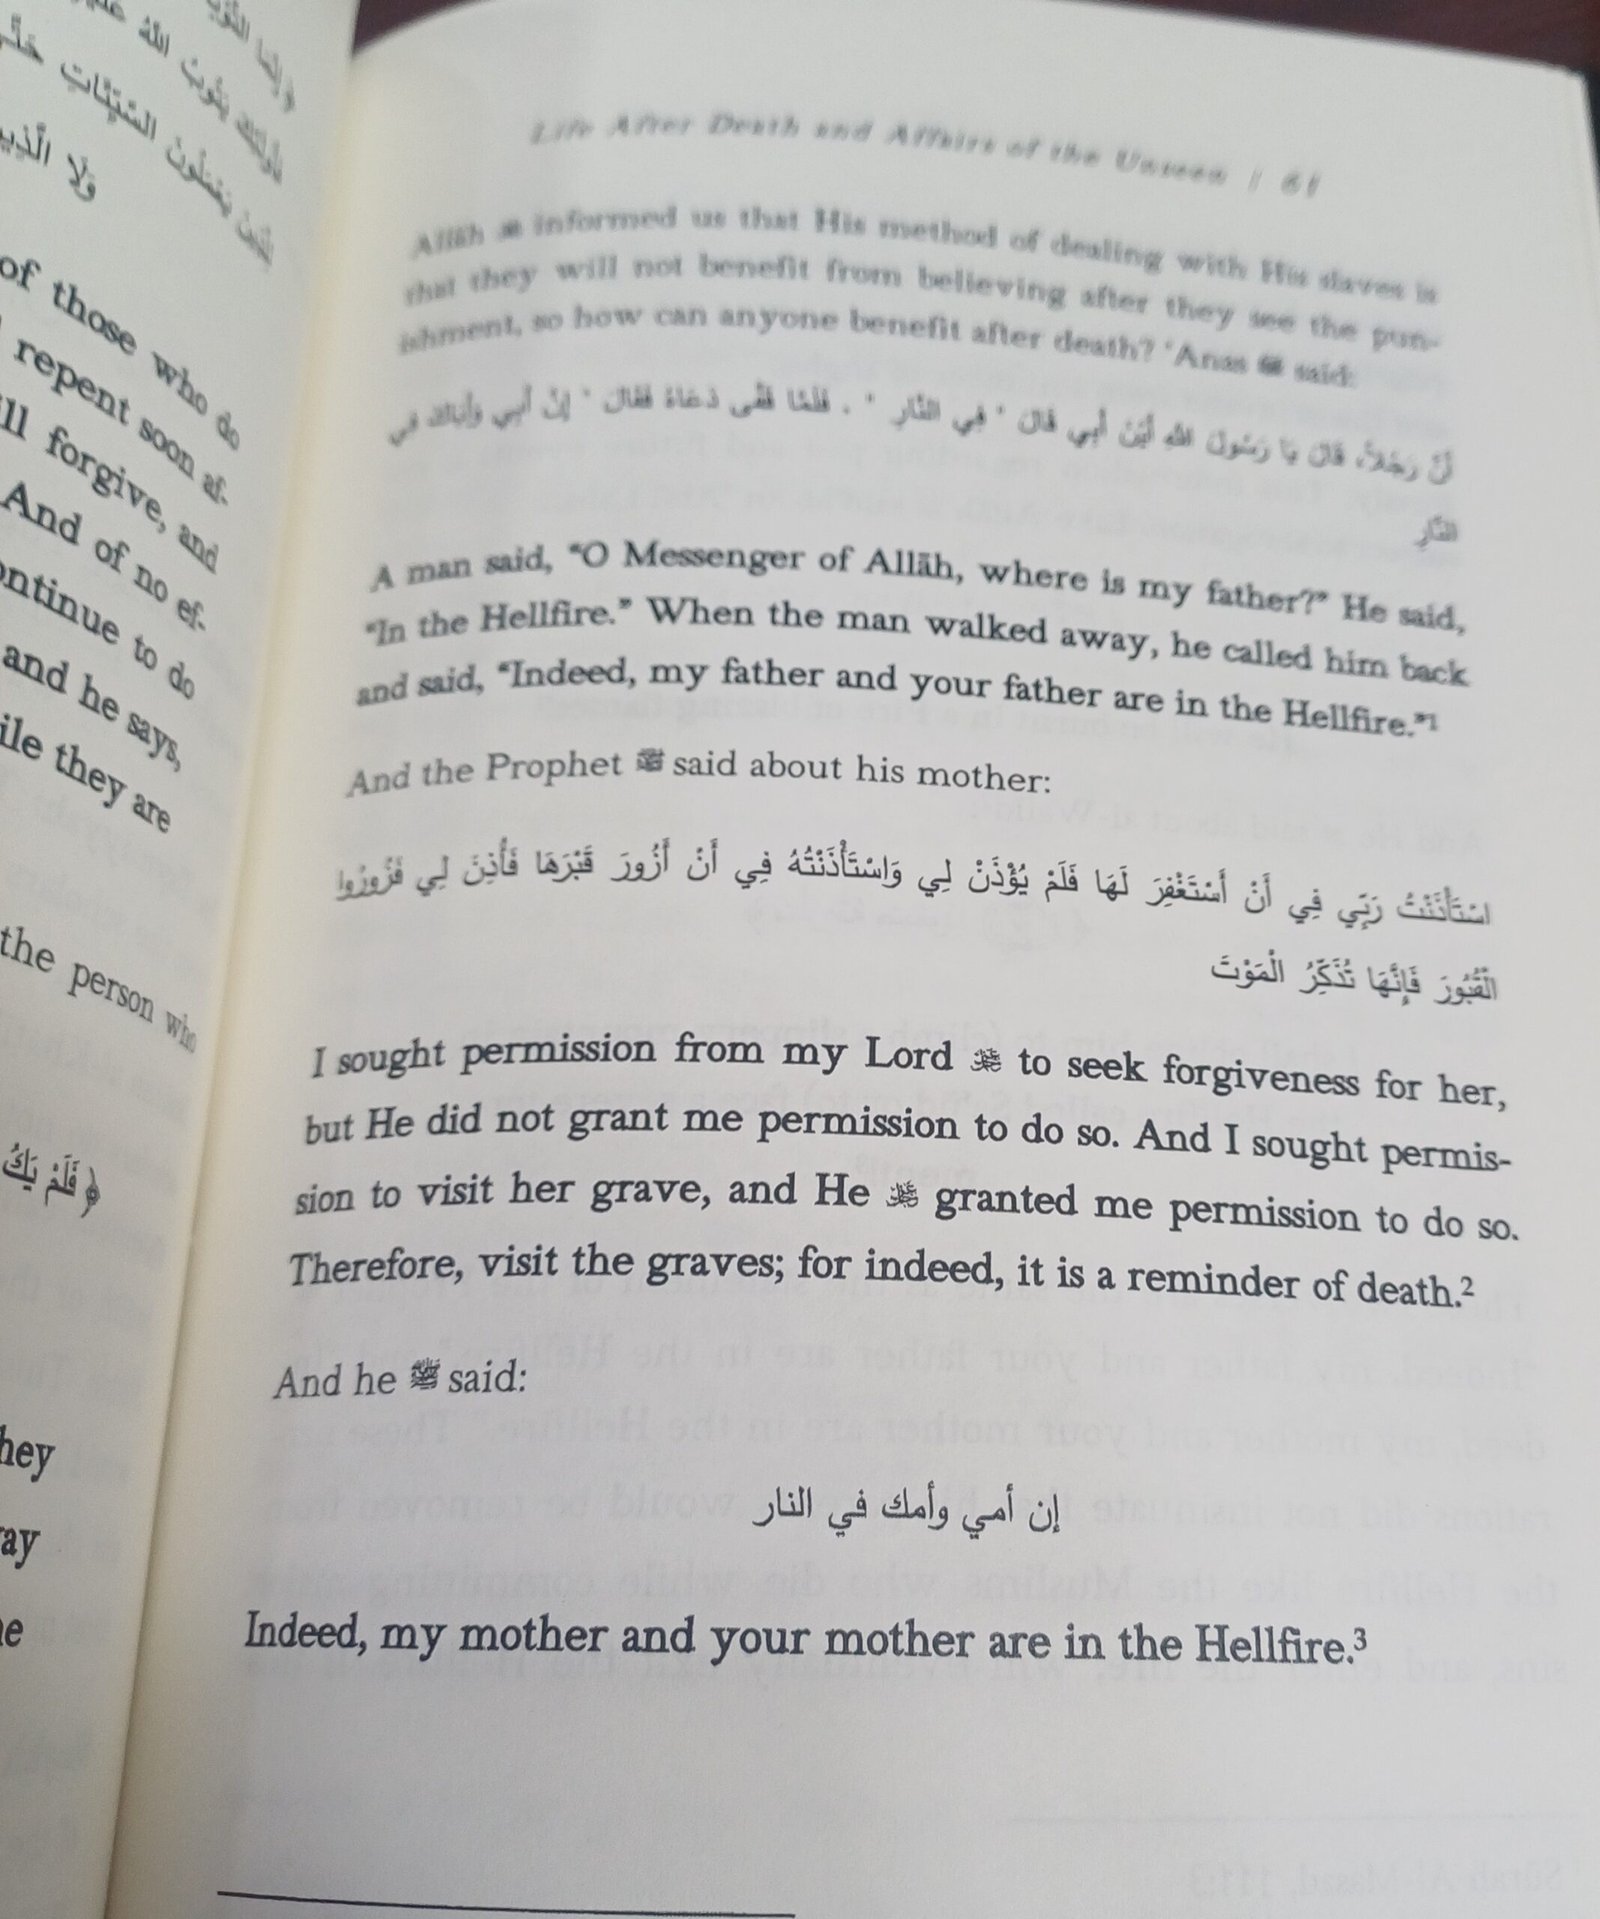 ﴿إِنَّمَا التَّوْبَةُ
فَأُولَٰئِكَ يَتُوبُ اللَّهُ
لِلَّذِينَ يَعْمَلُونَ السَّيِّئَاتِ حَتَّى
وَلَا الَّذِينَ
of those who do
repent soon af-
ill forgive, and
And of no ef-
ontinue to do
and he says,
ile they are
the person who
﴿فَلَمْ يَكُ
hey
ay
Life After Death and Affairs of the Unseen | 61
Allāh ﷻ informed us that His method of dealing with His slaves is
that they will not benefit from believing after they see the pun-
ishment, so how can anyone benefit after death? 'Anas said:
أَنَّ رَجُلاً، قَالَ يَا رَسُولَ اللَّهِ أَيْنَ أَبِي قَالَ " فِي النَّارِ " . فَلَمَّا قَفَّى دَعَاهُ فَقَالَ " إِنَّ أَبِي وَأَبَاكَ فِي
النَّارِ
A man said, “O Messenger of Allāh, where is my father?” He said,
“In the Hellfire.” When the man walked away, he called him back
and said, “Indeed, my father and your father are in the Hellfire.”¹
And the Prophet ﷺ said about his mother:
اسْتَأْذَنْتُ رَبِّي فِي أَنْ أَسْتَغْفِرَ لَهَا فَلَمْ يُؤْذَنْ لِي وَاسْتَأْذَنْتُهُ فِي أَنْ أَزُورَ قَبْرَهَا فَأُذِنَ لِي فَزُورُوا
الْقُبُورَ فَإِنَّهَا تُذَكِّرُ الْمَوْتَ
I sought permission from my Lord ﷻ to seek forgiveness for her,
but He did not grant me permission to do so. And I sought permis-
sion to visit her grave, and He ﷻ granted me permission to do so.
Therefore, visit the graves; for indeed, it is a reminder of death.²
And he ﷺ said:
إن أمي وأمك في النار
Indeed, my mother and your mother are in the Hellfire.³